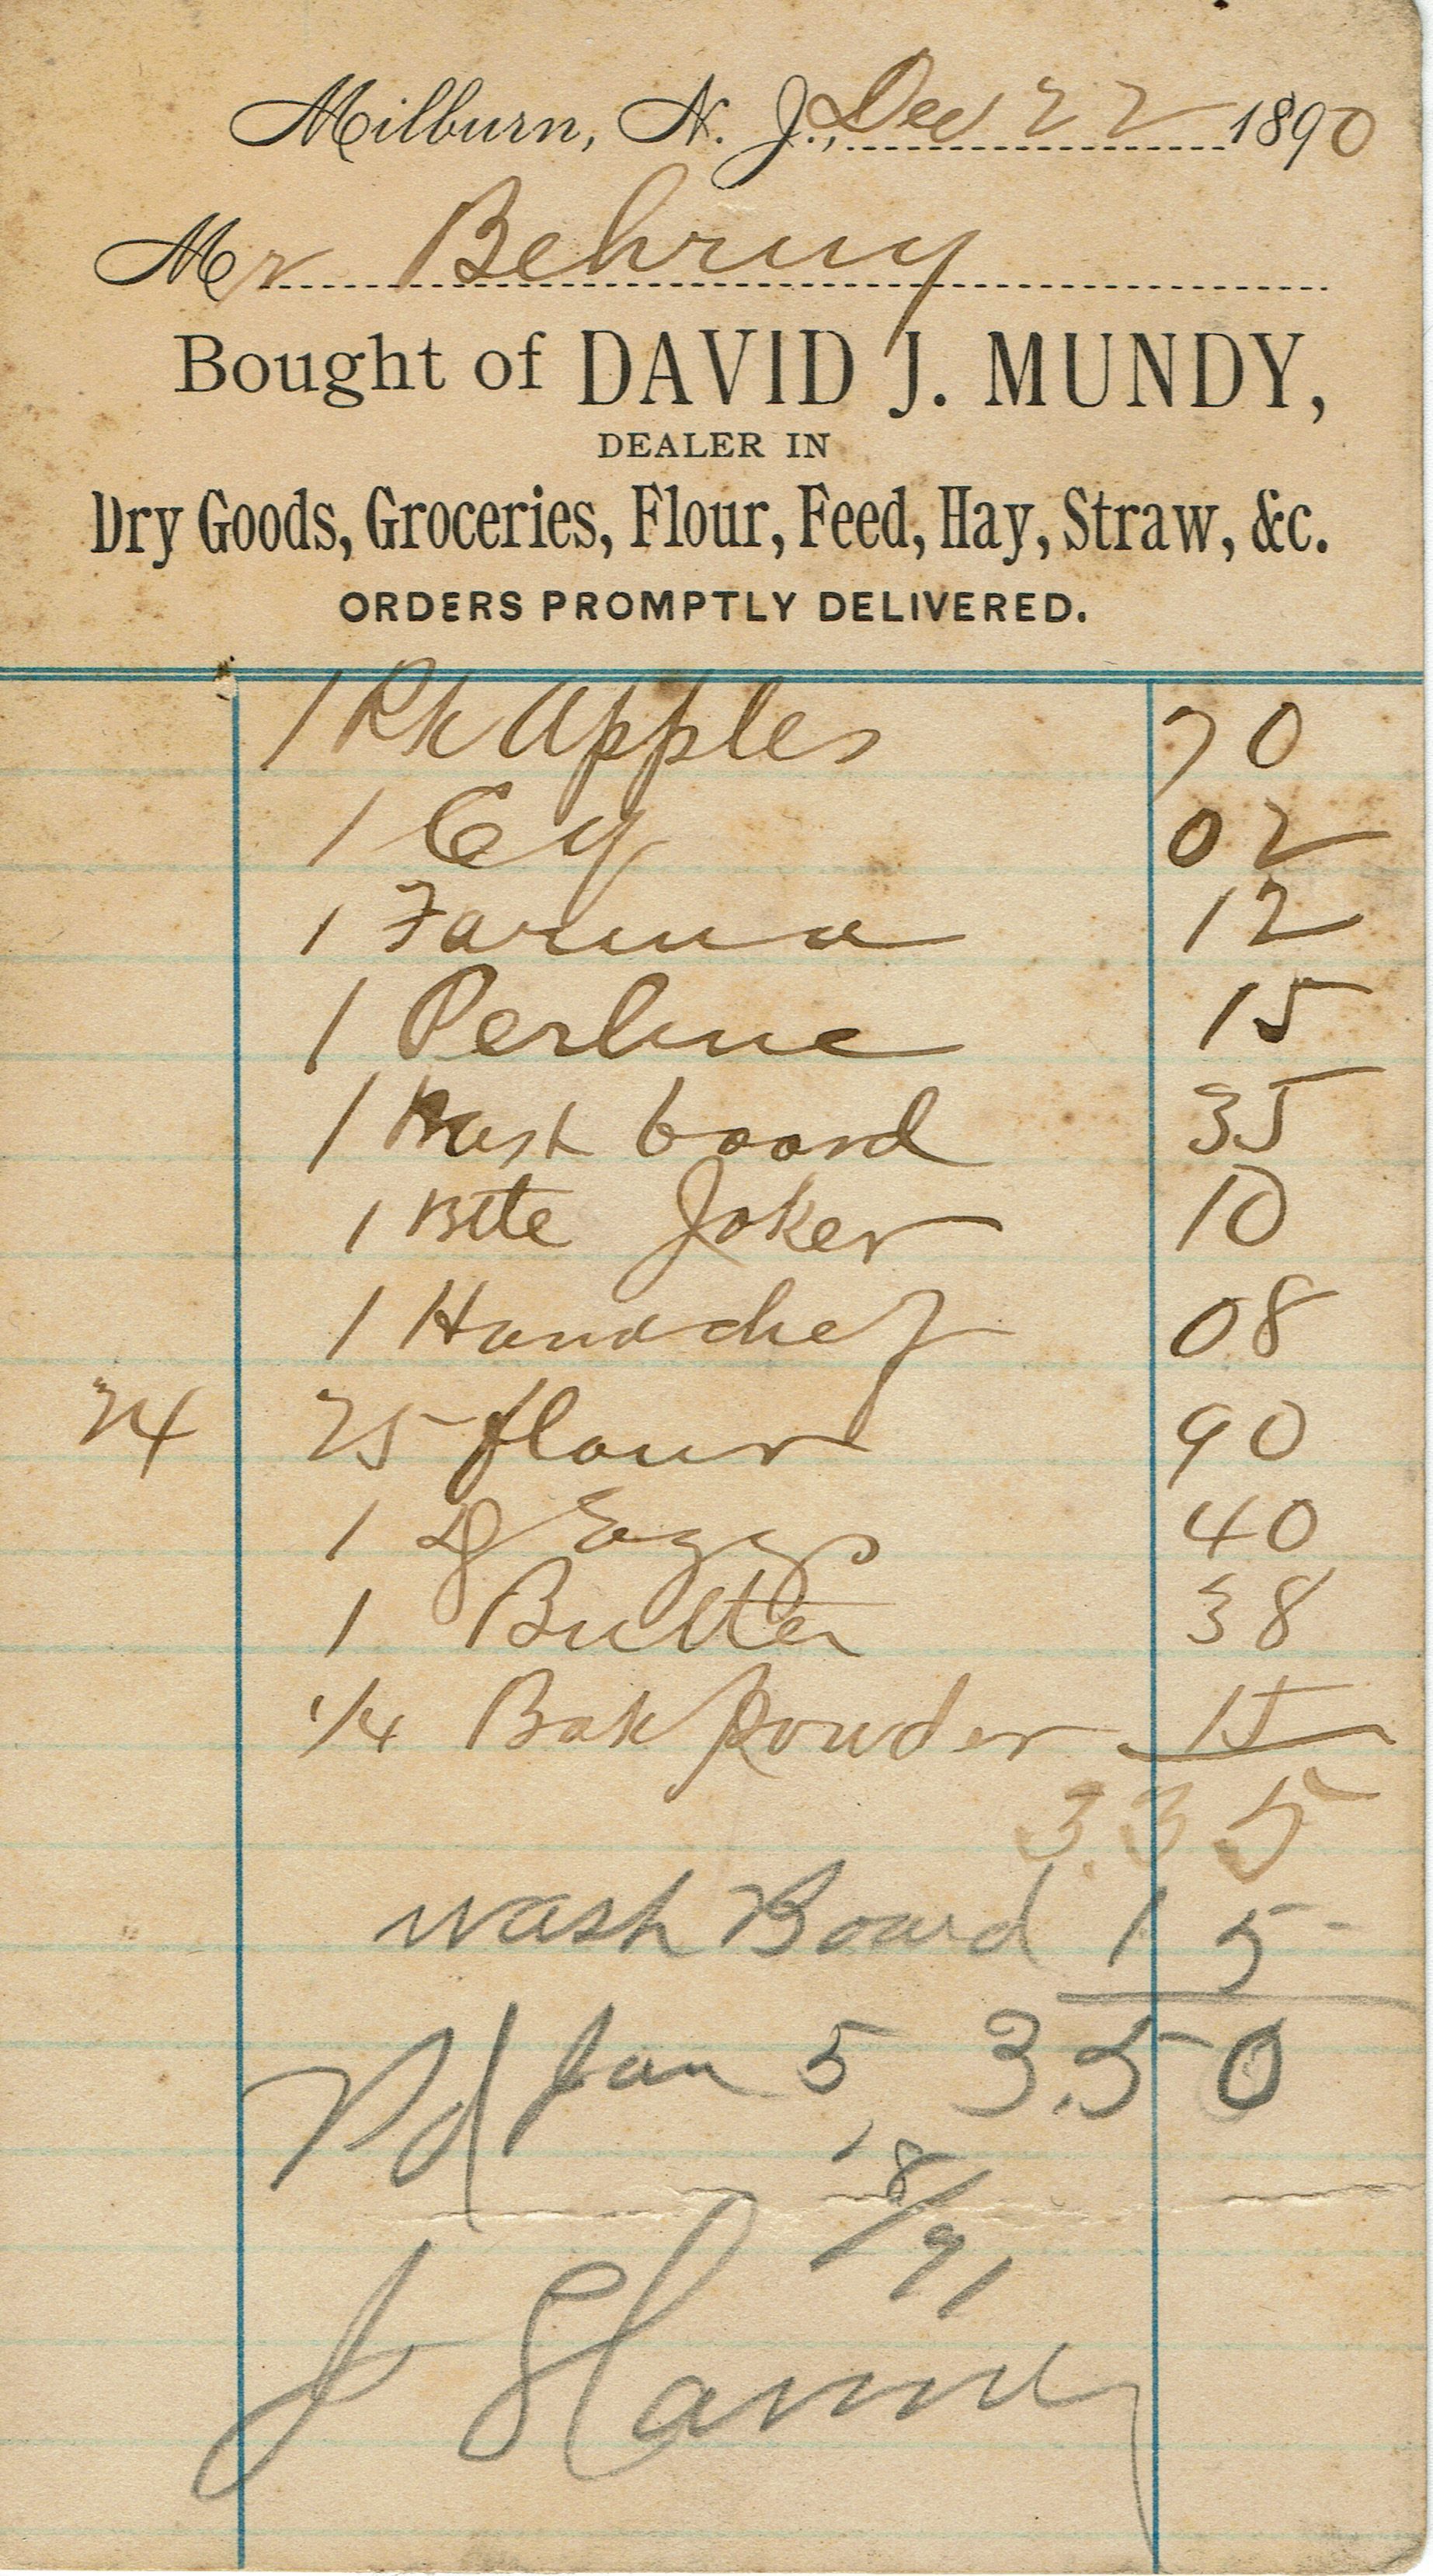 Milburn, N. J., Dec 22 1890
Mr
Bought of DAVID J. MUNDY,
DEALER IN
Dry Goods, Groceries, Flour, Feed, Hay, Straw, &c.
ORDERS PROMPTLY DELIVERED.
1 Pk Apples 70
1 02
1 Farina 12
1 Perline 15
1 Wash board 35
1 Joker 10
1 Handchef 08
24 25 flour 90
1 D Eggs 40
1 Butter 38
1/4 Bak Powder 15
3.35
Wash Board 15
Pd Jan 5, 3.50
18/91
J